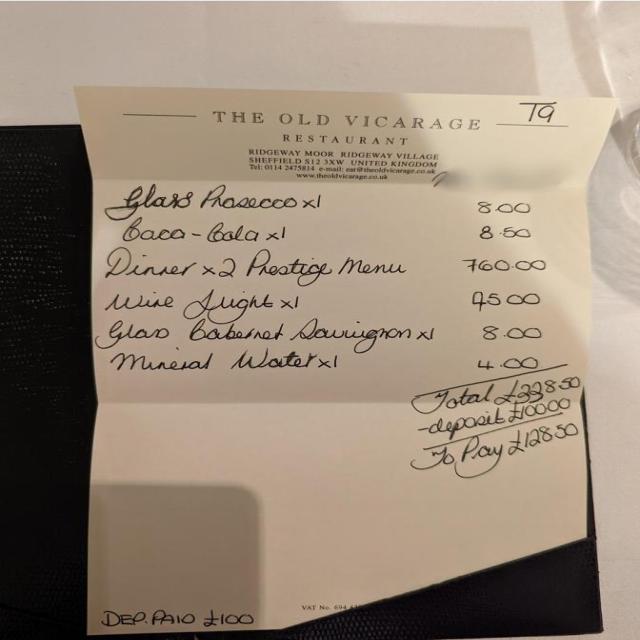 T9
THE OLD VICARAGE
RESTAURANT
RIDGEWAY MOOR RIDGEWAY VILLAGE
SHEFFIELD S12 3XW UNITED KINGDOM
Tel: 0114 2475814 e-mail: eat@theoldvicarage.co.uk
www.theoldvicarage.co.uk
Glass Prosecco x1 8.00
Coca-Cola x1 3.50
Dinner x2 Prestige Menu 160.00
Wine Flight x1 45.00
Glass Cabernet Sauvignon x1 8.00
Mineral Water x1 4.00
Total £228.50
-deposit £100.00
To Pay £128.50
VAT No. 694
DEP. PAID £100